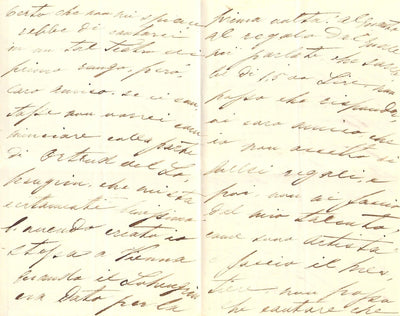 certo che non mi spiace
rebbe di cantare
in un bel Teatro di
primo rango, però,
caro amico, se ci can
tassi non vorrei com
inciare colla parte
di Ortrud del Lo
hengrin, che mi sta
certamente benissimo
avendo creato io
stessa a Vienna
quando il Lohengrin
era Dato per la
prima volta. al quanto
al regalo del quale
poi parlate che sareb
be di 1,500 Lire non
posso che rispondere
vi caro amico che
io non accetto di
quelli regali, e
poi non ne faccio
del mio talento,
come sono artista
e faccio il mes
tiere non posso
che cantare che